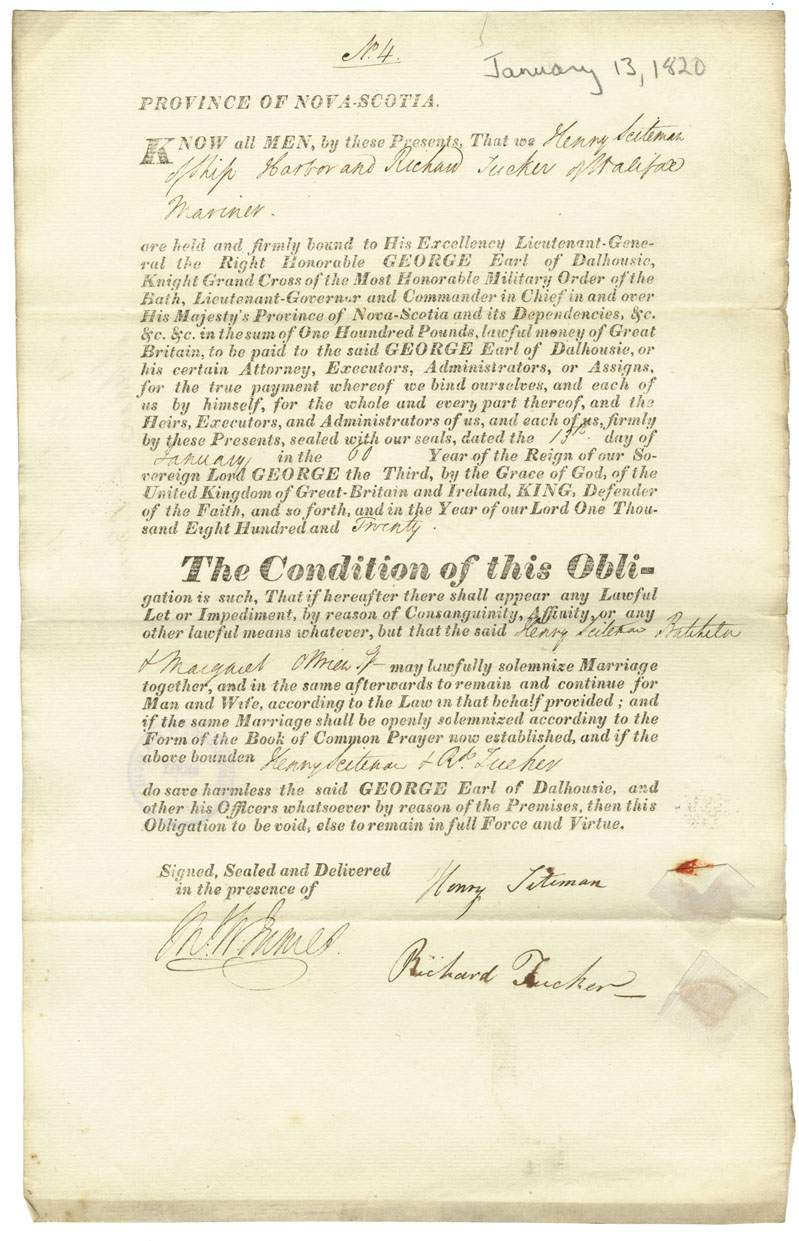 No. 4.
January 13, 1820
PROVINCE OF NOVA-SCOTIA.
KNOW all MEN, by these Presents, That we Henry Sciteman
of Ship Harbor and Richard Tucker of Halifax
Mariner.
are held and firmly bound to His Excellency Lieutenant-Gene-
ral the Right Honorable GEORGE Earl of Dalhousie,
Knight Grand Cross of the Most Honorable Military Order of the
Bath, Lieutenant-Governor and Commander in Chief in and over
His Majesty's Province of Nova-Scotia and its Dependencies, &c.
&c. &c. in the sum of One Houndred Pounds, lawful money of Great
Britain, to be paid to the said GEORGE Earl of Dalhousie, or
his certain Attorney, Executors, Administrators, or Assigns,
for the true payment whereof we bind ourselves, and each of
us by himself, for the whole and every part thereof, and the
Heirs, Executors, and Administrators of us, and each of us, firmly
by these Presents, sealed with our seals, dated the 13th. day of
January in the 60 Year of the Reign of our So-
vereign Lord GEORGE the Third, by the Grace of God, of the
United Kingdom of Great-Britain and Ireland, KING, Defender
of the Faith, and so forth, and in the Year of our Lord One Thou-
sand Eight Hundred and Twenty.
The Condition of this Obli-
gation is such, That if hereafter there shall appear any Lawful
Let or Impediment, by reason of Consanguinity, Affinity, or any
other lawful means whatever, but that the said Henry Sciteman Batchelor
& Margaret O'Brien Sp may lawfully solemnize Marriage
together, and in the same afterwards to remain and continue for
Man and Wife, according to the Law in that behalf provided; and
if the same Marriage shall be openly solemnized accordiny to the
Form of the Book of Common Prayer now established, and if the
above bounden Henry Sciteman & Rd. Tucker
do save harmless the said GEORGE Earl of Dalhousie, and
other his Officers whatsoever by reason of the Premises, then this
Obligation to be void, else to remain in full Force and Virtue.
Signed, Sealed and Delivered
in the presence of
Henry Siteman
Richard Tucker